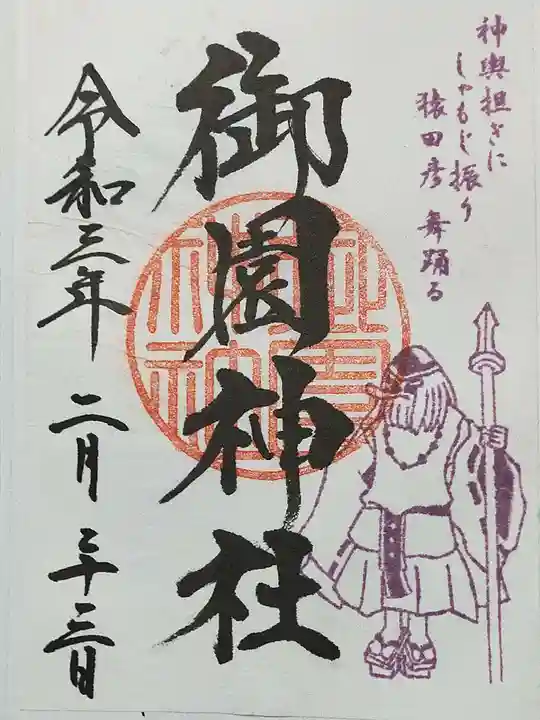 神輿担ぎに
しゃもじ振り
猿田彦 舞踊る
御園神社
令和三年 二月 二十三日